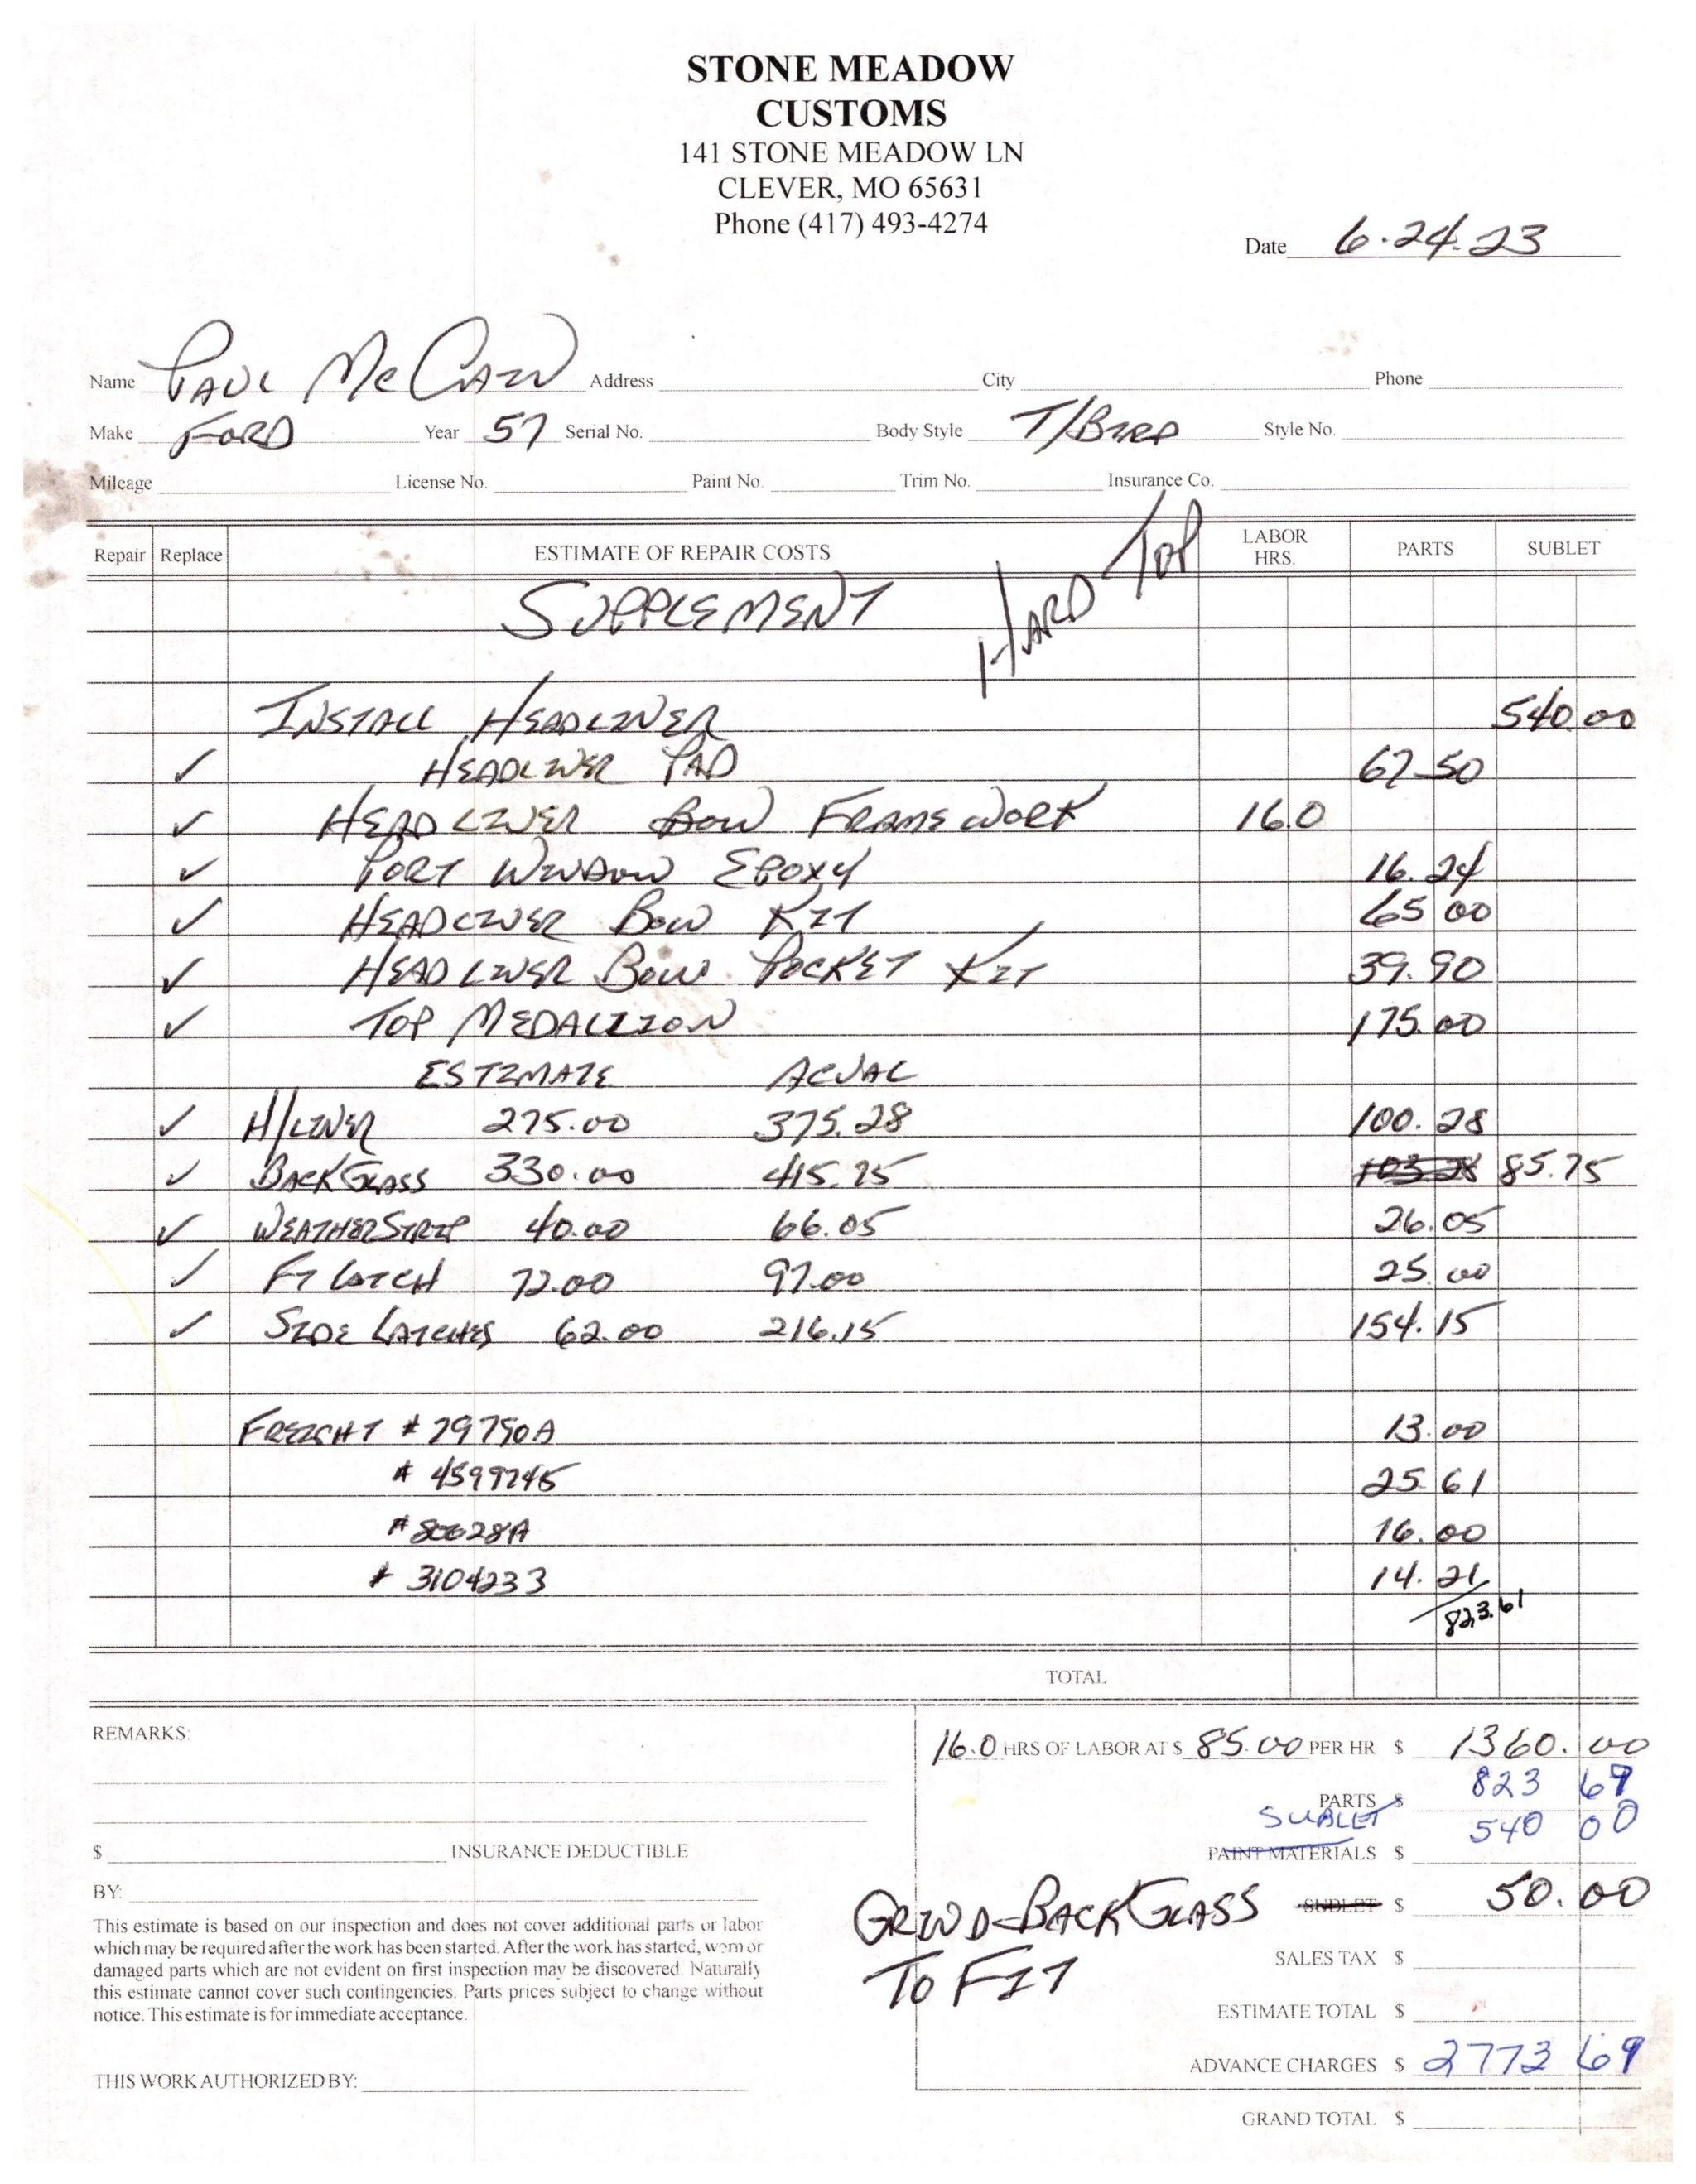 STONE MEADOW
CUSTOMS
141 STONE MEADOW LN
CLEVER, MO 65631
Phone (417) 493-4274
Date 6.24.23
Name PAUL McCAIN Address City Phone
Make FORD Year 57 Serial No. Body Style T/BIRD Style No.
Mileage License No. Paint No. Trim No. Insurance Co.
Repair Replace ESTIMATE OF REPAIR COSTS LABOR HRS. PARTS SUBLET
SUPPLEMENT HARD TOP
INSTALL HEADLINER 540.00
✓ HEADLINER PAD 67.50
✓ HEADLINER BOW FRAMEWORK 16.0
✓ PORT WINDOW EPOXY 16.24
✓ HEADLINER BOW KIT 65 00
✓ HEADLINER BOW POCKET KIT 39.90
✓ TOP MEDALLION 175.00
ESTIMATE ACUAL
✓ H/LINER 275.00 375.28 100.28
✓ BACK GLASS 330.00 415.75 85.75
✓ WEATHERSTRIP 40.00 66.05 26.05
✓ FT LATCH 72.00 97.00 25.00
✓ SIDE LATCHES 62.00 216.15 154.15
FREIGHT # 79790A 13.00
# 4599745 25.61
# 80028A 16.00
# 3104233 14.21
823.61
TOTAL
REMARKS:
16.0 HRS OF LABOR AT $ 85.00 PER HR $ 1360.00
PARTS $ 823 69
SUBLET 540 00
PAINT MATERIALS $
$ INSURANCE DEDUCTIBLE
BY:
GRIND-BACK GLASS SUBLET $ 50.00
TO FIT
SALES TAX $
ESTIMATE TOTAL $
ADVANCE CHARGES $ 2773 69
GRAND TOTAL $
This estimate is based on our inspection and does not cover additional parts or labor
which may be required after the work has been started. After the work has started, worn or
damaged parts which are not evident on first inspection may be discovered. Naturally
this estimate cannot cover such contingencies. Parts prices subject to change without
notice. This estimate is for immediate acceptance.
THIS WORK AUTHORIZED BY: